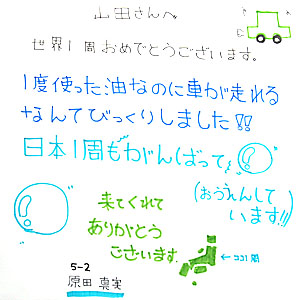 山田さんへ
世界1周おめでとうございます。
1度使った油なのに車が走れる
なんてびっくりしました!!
日本1周もがんばって!
(おうえんして
います!!!)
来てくれて
ありがとう
ございます。
5-2
原田 真実